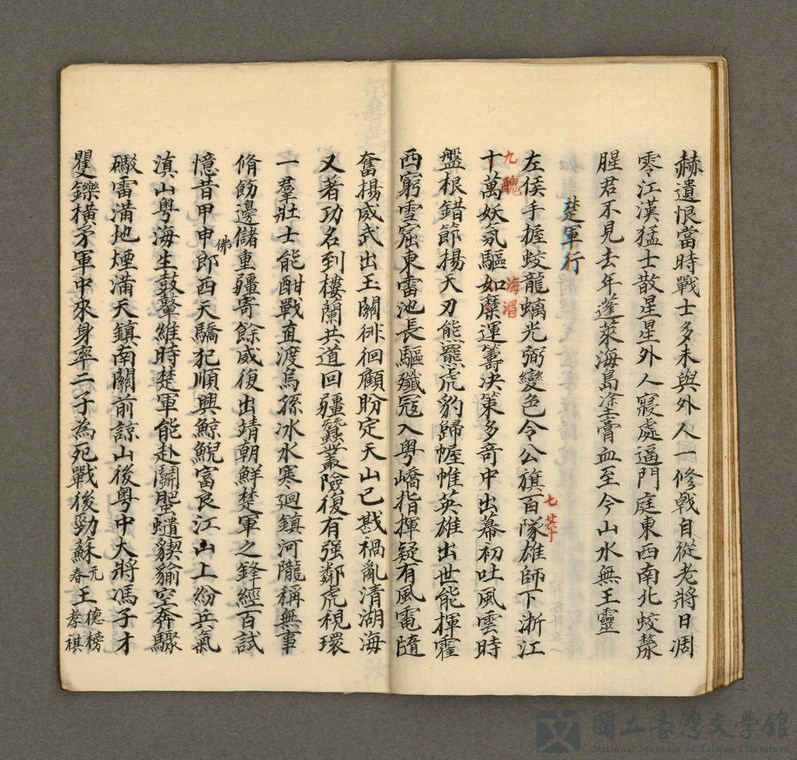 赫遺恨當時戰士多未與外人一修戟自從老將日凋
零江漢猛士散星星外人寢處逼門庭東西南北蛟鼇
腥君不見去年蓬萊海島塗膏血至今山水無王靈
楚軍行
左侯手握蛟龍螭光弼變色令公旗百隊雄師下浙江
七萃
九醜 海湄
十萬妖氛驅如麋運籌決策多奇中出幕初吐風雲時
盤根錯節揚天刃熊羆虎豹歸幄帷英雄出世能揮霍
西窮雪窟東雷池長驅殲寇入粵嶠指揮疑有風電隨
奮揚威武出玉關徘徊顧盼定天山已戡禍亂清湖海
又著功名到樓蘭共道回疆蠶叢險復有强鄰虎視環
一羣壯士能酣戰直渡烏孫冰水寒迴鎮河隴稱無事
脩飭邊儲重疆寄餘威復出靖朝鮮楚軍之鋒經百試
佛
憶昔甲申郎西天驕犯順興鯨鯢富良江山上紛兵氣
滇山粵海生鼓鼙維時楚軍能赴鬭蜰蟢貏貐空奔驟
礮雷滿地煙滿天鎮南關前諒山後粵中大將馮子才
矍鑠橫矛軍中來身率二子為死戰後勁蘇元春王德榜孝祺
國立臺灣文學館
National Museum of Taiwan Literature